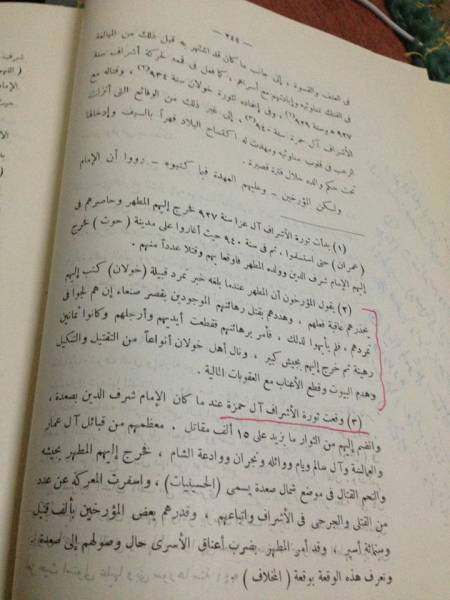 — ٢٤٥ —
فى العنف والقسوة ، إلى جانب ما كان قد اشتهر به قبل ذلك من المبالغة
فى الفتك بمناوئيه وإبادتهم مع أسراهم ، كما فعل فى قمعه لحركة أشراف سنة
٩٢٧ هـ وسنة ٩٢٩(١) ، وفى إخماده لثورة خولان سنة ٩٣٤(٢) ، وقتاله مع
الأشراف آل حمزة سنة ٩٤٠(٣) ، إلى غير ذلك من الوقائع التى أنزلت
الرعب فى قلوب مناوئيه ومهدت له اكتساح البلاد قهراً بالسيف وإدخالها
تحت حكم والده خلال فترة قصيرة .
ولكن المؤرخين – وعليهم العهدة فيما كتبوه – رووا أن الإمام
(١) بدأت ثورة الأشراف آل عزا سنة ٩٢٧ فخرج إليهم المطهر وحاصرهم فى
(عمران) حتى استسلموا ، ثم فى سنة ٩٤٠ حيث أغاروا على مدينة (حوث) فخرج
إليهم الإمام شرف الدين وولده المطهر فأوقعا بهم وقتلا عدداً منهم .
(٢) يقول المؤرخون أن المطهر عندما بلغه خبر تمرد قبيلة (خولان) كتب إليهم
يحذرهم عاقبة فعلهم ، وهددهم بقتل رهائنهم الموجودين بقصر صنعاء إن هم لجوا فى
تمردهم ، فلم يأبهوا لذلك . فأمر برهائنهم فقطعت أيديهم وأرجلهم وكانوا ثمانين
رهينة ثم خرج إليهم بجيش كبير ، ونال أهل خولان أنواعاً من التقتيل والتنكيل
وهدم البيوت وقطع الأعناب مع العقوبات المالية .
(٣) وقعت ثورة الأشراف آل حمزة عند ما كان الإمام شرف الدين بصعدة ،
وانضم إليهم من الثوار ما يزيد على ١٥ ألف مقاتل . معظمهم من قبائل آل عمار
والعمالسة وآل سالم ويام ووائله ونجران ووادعة الشام ، فخرج إليهم المطهر بجيشه
والتحم القتال فى موضع شمال صعدة يسمى (الحسينيات) ، وأسفرت المعركة عن عدد
من القتلى والجرحى فى الأشراف وأتباعهم ، وقدرهم بعض المؤرخين بألف قتيل
وستمائة أسير ، وقد أمر المطهر بضرب أعناق الأسرى حال وصولهم إلى صعدة .
وتعرف هذه الوقعة بوقعة (المخلاف)